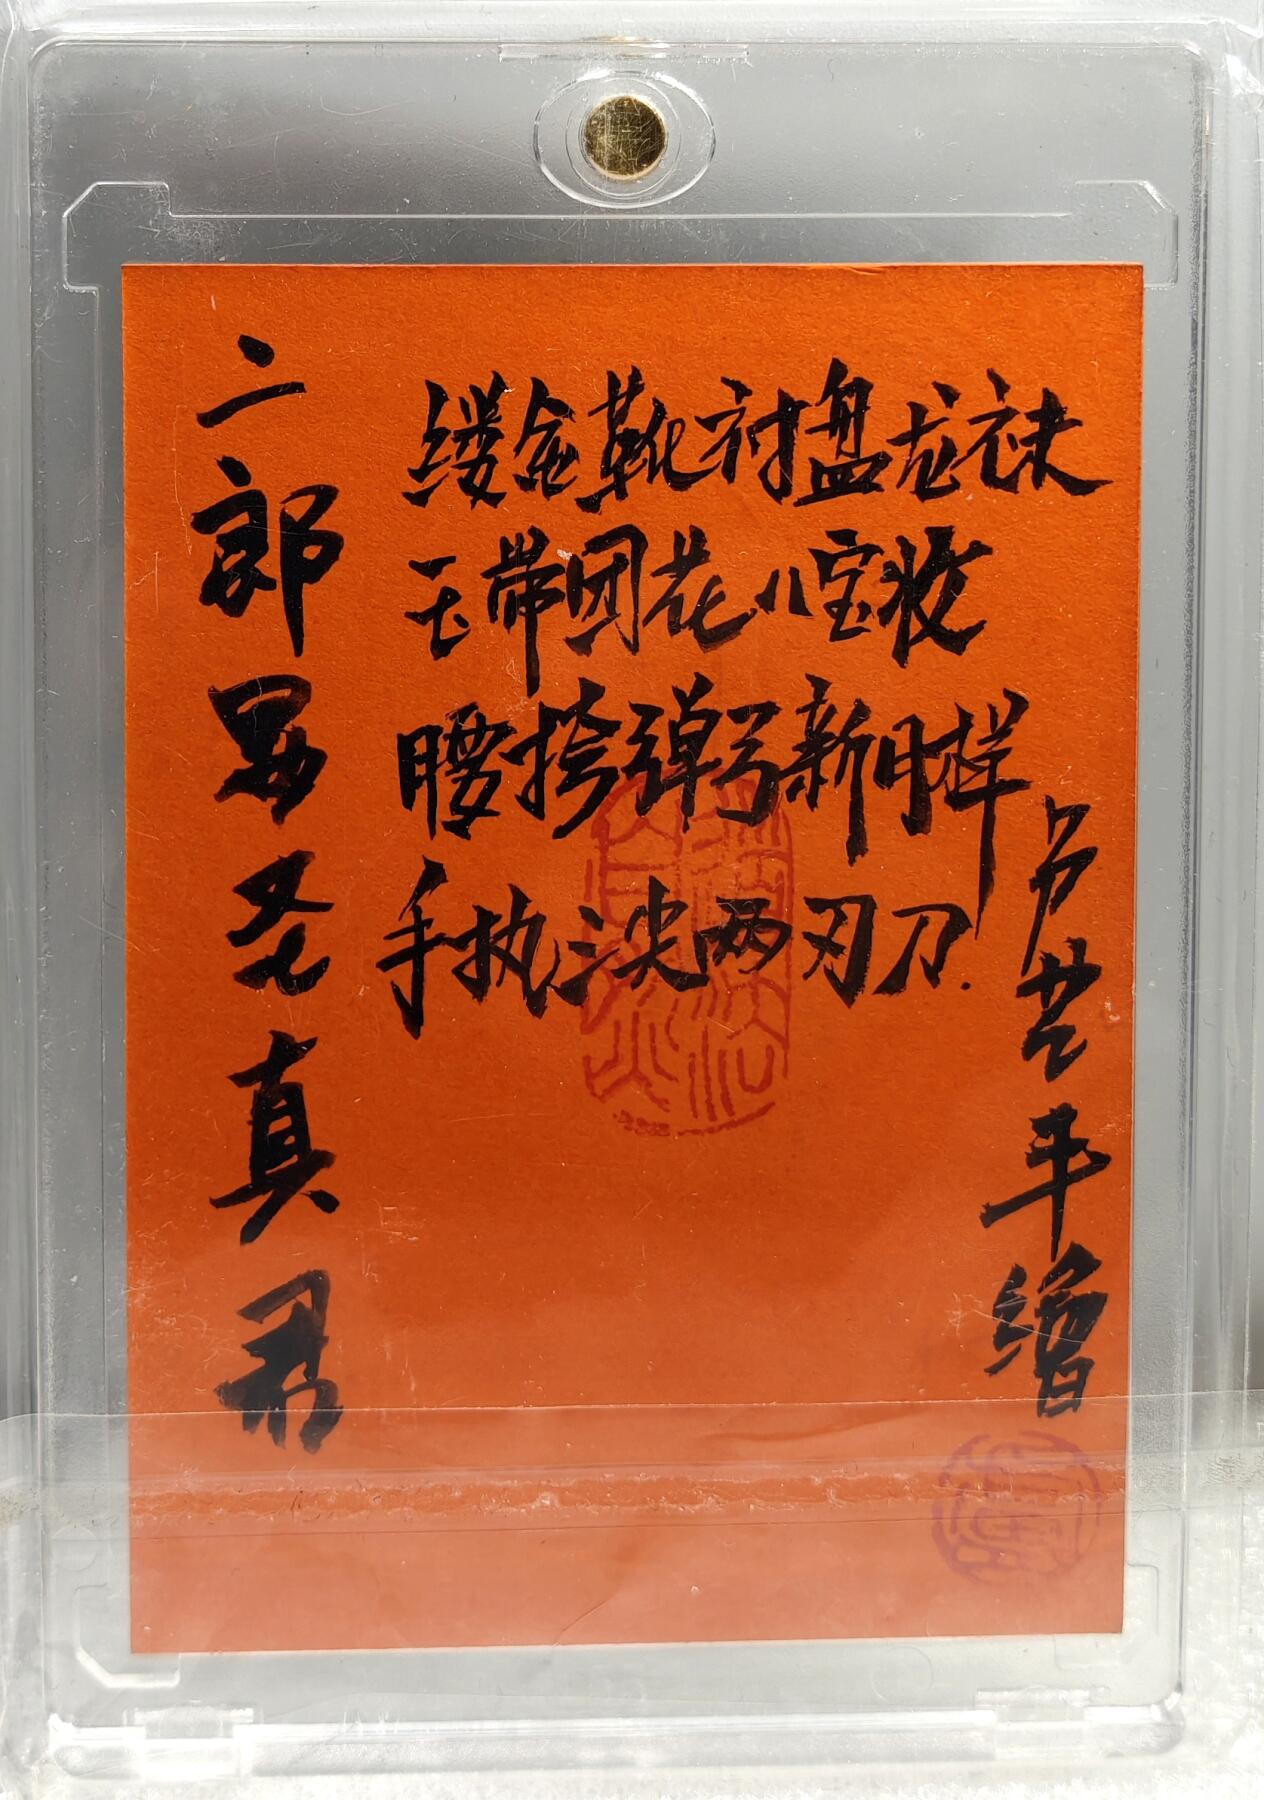 二郎显圣真君
缕金靴衬盘龙袜
玉带团花八宝妆
腰挎弹弓新月样
手执三尖两刃刀.
卢艺平繪